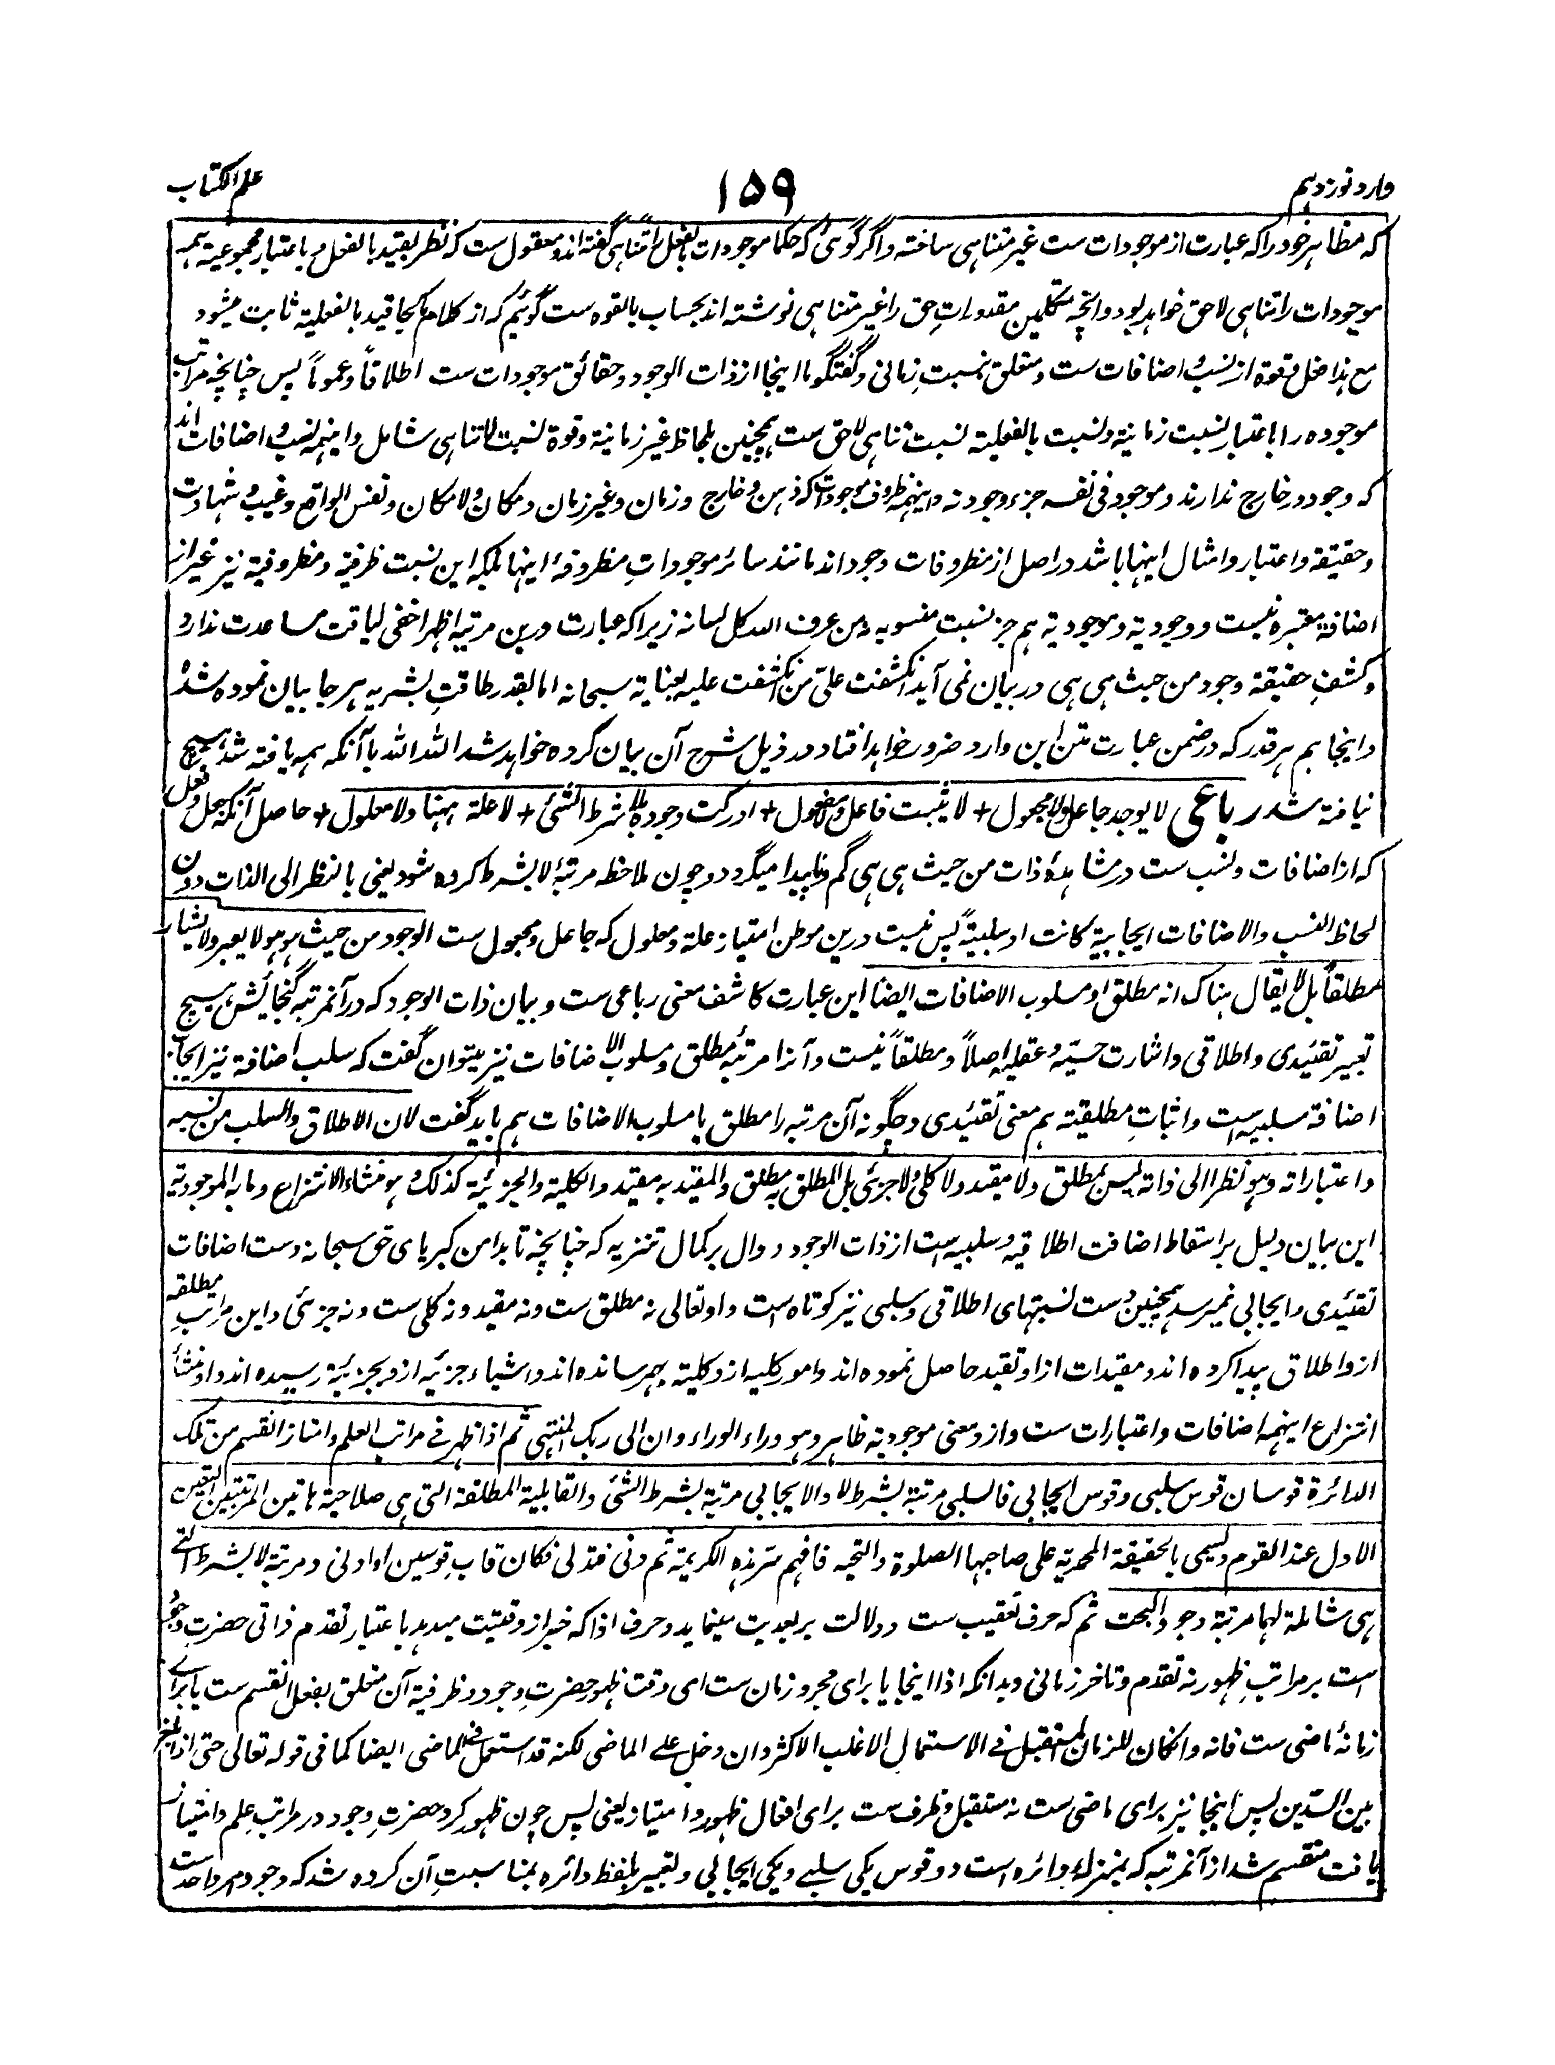 وارد نوزدهم
۱۵۹
علم الکتاب
که مظاهر خود را که عبارت از موجودات ست غیر متناهی ساخته و اگر گوئی که حکما موجودات بالفعل را متناهی گفته اند و معقول ست که نظر بقید بالفعل و باعتبار مجموعیة همه
موجودات را تناهی لاحق خواهد بود و آنچه متکلمین مقدورات حق را غیر متناهی نوشته اند بحساب بالقوه ست گوئیم که از کلام کجا قید بالفعلیة ثابت میشود
مع هذا فعل و قوة از نسب و اضافات ست و متعلق بنسبت زمانی و گفتگوی ما اینجا از ذات الوجود و حقائق موجودات ست اطلاقاً و عموماً پس چنانچه مراتب
موجوده را باعتبار نسبت زمانیة و نسبت بالفعلیة نسبت تناهی لاحق ست همچنین بلحاظ غیر زمانیة و قوة نسبت لاتناهی شامل و اینهمه نسب و اضافات اند
که وجود در خارج ندارند و موجود فی نفسه جز وجود نه و اینهمه ظروف موجودات که ذهن و خارج و زمان و غیر زمان و مکان و لامکان و نفس الواقع و غیب و شهادت
و حقیقة و اعتبار و امثال اینها باشد در اصل از مظروفات وجود اند مانند سائر موجودات مظروفهٔ اینها بلکه این نسبت ظرفیة و مظروفیة نیز غیر از
اضافة معتبره نیست و وجودیة و موجودیة هم جز نسبت منسوبه و من عرف الله کل لسانه زیرا که عبارت درین مرتبه اظهر اخفی لیاقت مساعدت ندارد
و کشف حقیقة وجود من حیث هی هی در بیان نمی آید انکشفت علیّ من انکشفت علیه بعنایة سبحانه اما بقدر طاقت بشریه هر جا بیان نموده شد
و اینجا هم هر قدر که در ضمن عبارت متن این وارد ضرور خواهد افتاد در ذیل شرح آن بیان کرده خواهد شد الله الله با آنکه همه یافته شد هیچ
نیافته شد رباعی لا یوجد جاعل ولا مجعول + لا یثبت فاعل ولا مفعول + ادرکت وجوده بلا شرط الشئ + لا علة ههنا ولا معلول + حاصل آنکه جعل و فعل
که از اضافات و نسب ست در مشاهدهٔ ذات من حیث هی هی گم و ناپیدا میگردد و چون ملاحظه مرتبهٔ لا بشرط کرده شود یعنی بالنظر الی الذات دون
لحاظ النسب والاضافات ایجابیة کانت او سلبیة پس نیست درین موطن امتیاز علة و معلول که جاعل و مجعول ست الوجود من حیث هو هو لا یعبر ولا یشار
مطلقاً بل لا یقال هناک انه مطلق او مسلوب الاضافات ایضا این عبارت کاشف معنی رباعی ست و بیان ذات الوجود که در آنمرتبه گنجائش هیچ
تعبیر تقئیدی و اطلاقی و اشارت حسیّه و عقلیه اصلاً و مطلقاً نیست و آنرا مرتبهٔ مطلق و مسلوب الاضافات نیز نمیتوان گفت که سلب اضافة نیز ایجاب
اضافة سلبیه است و اثبات مطلقیته هم معنی تقئیدی و چگونه آن مرتبه را مطلق یا مسلوب الاضافات هم باید گفت لان الاطلاق والسلب من نسبه
واعتباراته وهو نظرا الی ذاته لیس بمطلق ولا مقید ولا کلی ولا جزئی بل المطلق به مطلق والمقید به مقید والکلیة والجزئیة کذلک و هو منشاء الانتزاع وما به الموجودیة
این بیان دلیل بر اسقاط اضافت اطلاقیه و سلبیه است از ذات الوجود و دال بر کمال تنزیه که چنانچه تا بدامن کبریای حق سبحانه دست اضافات
تقئیدی و ایجابی نمیرسد همچنین دست نسبتهای اطلاقی و سلبی نیز کوتاه است و او تعالی نه مطلق ست و نه مقید و نه کلی ست و نه جزئی و این مراتب مطلقه
از و اطلاق پیدا کرده اند و مقیدات از او تقید حاصل نموده اند و امور کلیه از و کلیة بهم رسانده اند و اشیاء جزئیه از و بجزئیة رسیده اند و او منشأ
انتزاع اینهمه اضافات و اعتبارات ست و از و معنی موجودیة ظاهر و هو وراء الوراء وان الی ربک المنتهی ثم اذا ظهر فی مراتب العلم وامتاز انقسم من تلک
الدائرة قوسان قوس سلبی وقوس ایجابی فالسلبی مرتبة بشرط لا والایجابی مرتبة بشرط الشئ والقابلیة المطلقة التی هی صلاحیة هاتین المرتبتین التعین
الاول عند القوم ویسمی بالحقیقة المحمدیة علی صاحبها الصلوة والتحیه فافهم سر هذه الکریمة ثم دنی فتدلی فکان قاب قوسین او ادنی و مرتبة لا بشرط التی
هی شاملة لهما مرتبة وجود البحت ثم که حرف تعقیب ست و دلالت بر بعدیت مینماید و حرف اذا که خبر از وقتیت میدهد باعتبار تقدم ذاتی حضرت وجود
است بر مراتب ظهور نه تقدم و تاخر زمانی و بدانکه اذا اینجا یا برای مجرد زمان ست ای وقت ظهور حضرت وجود و ظرفیة آن متعلق بفعل انقسم ست یا برای
زمانهٔ ماضی ست فانه وان کان للزمان المستقبل فی الاستعمال الاغلب الاکثر وان دخل علی الماضی لکنه قد استعمل فی الماضی ایضا کما فی قوله تعالی حتی اذا بلغ
بین السدین پس اینجا نیز برای ماضی ست نه مستقبل و ظرف ست برای افعال ظهور و امتیاز یعنی پس چون ظهور کرد حضرت وجود در مراتب علم و امتیاز
یافت منقسم شد از آنمرتبه که بمنزلهٔ دائره است دو قوس یکی سلبی و یکی ایجابی و تعبیر بلفظ دائره بمناسبت آن کرده شد که وجود امر واحد ست